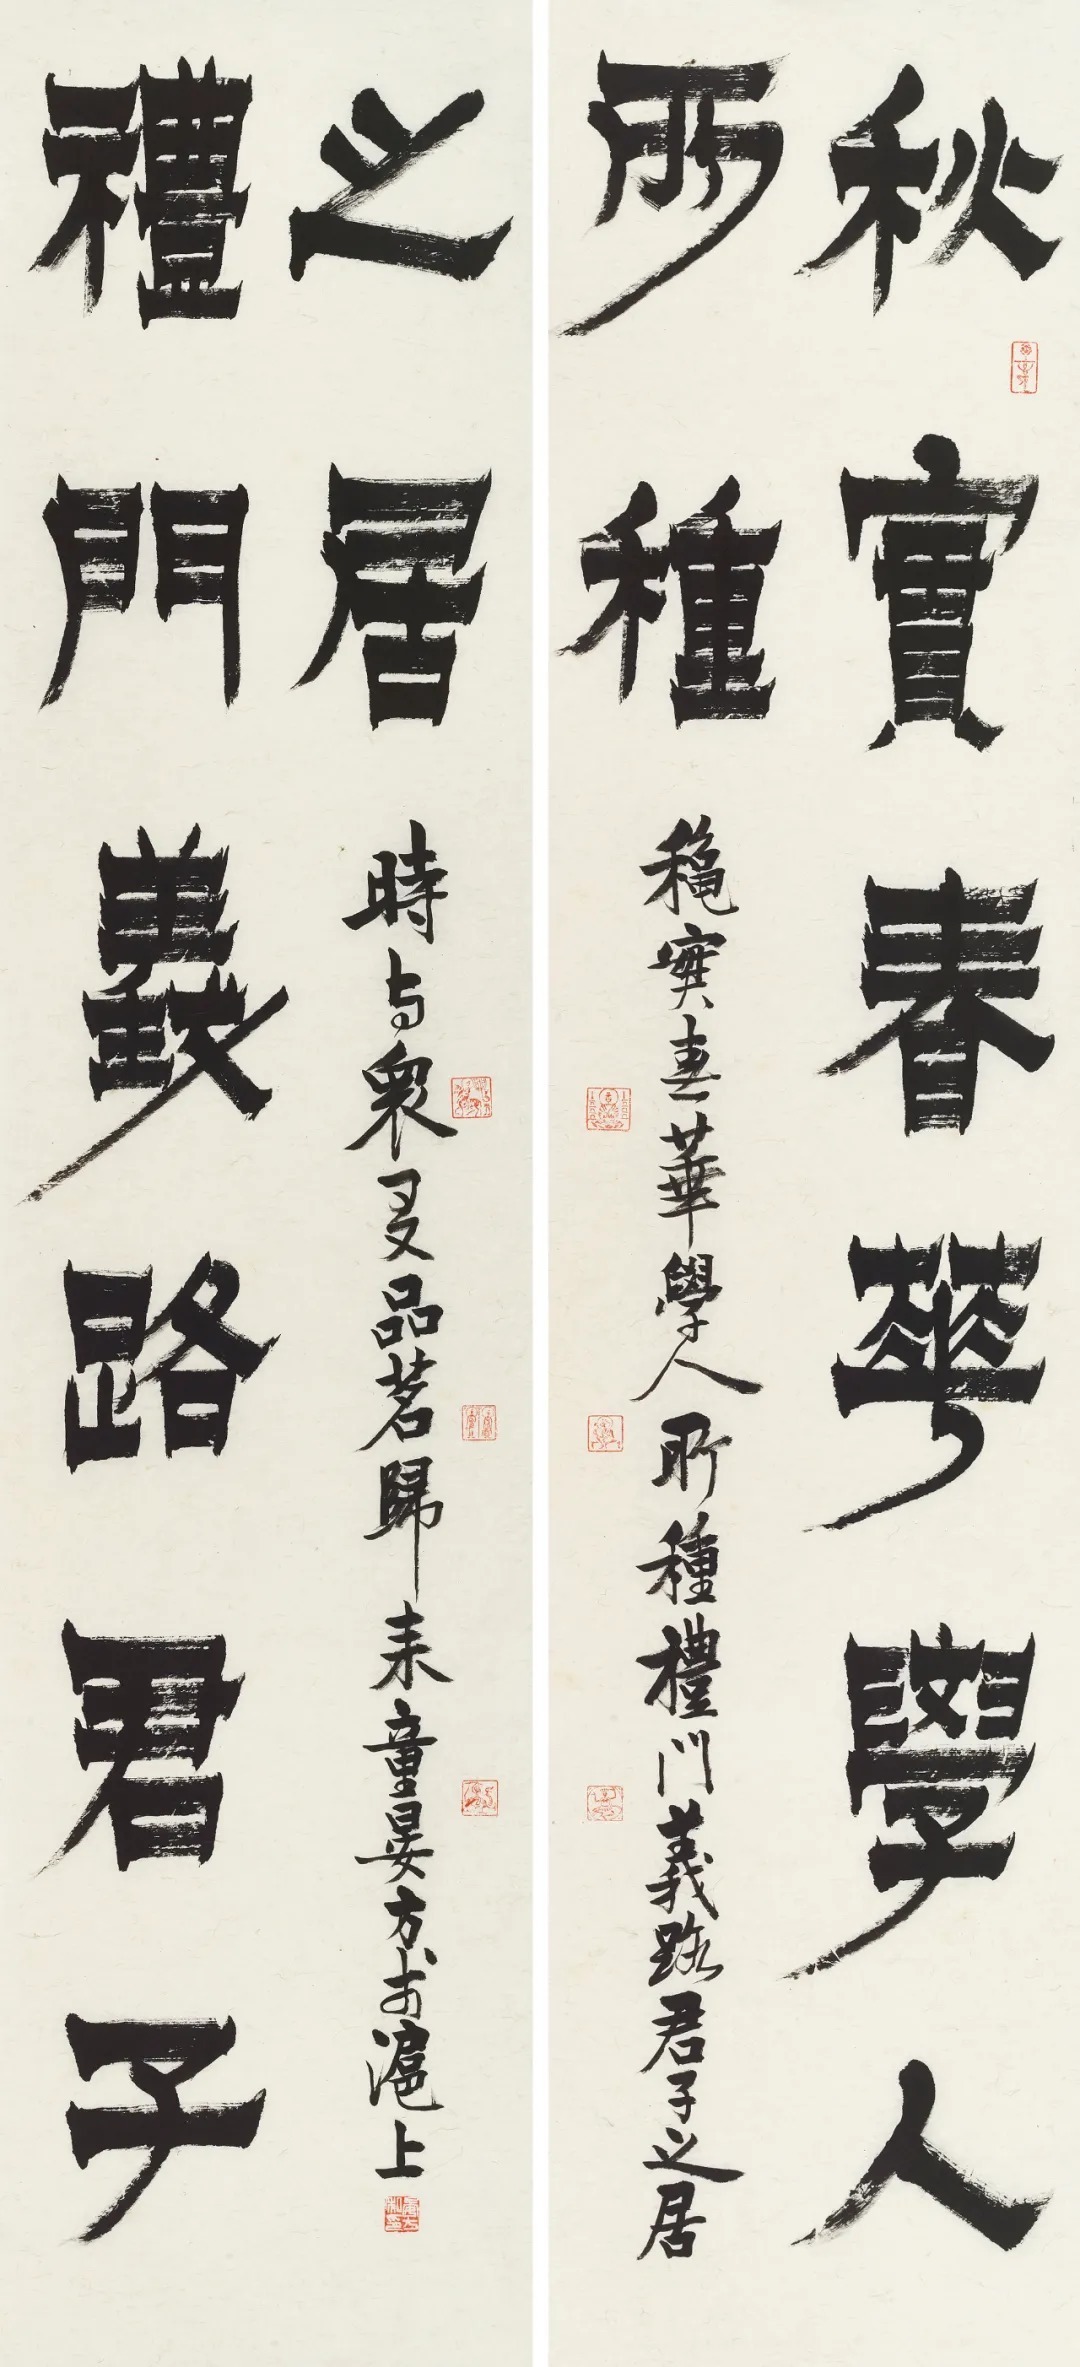 秋實春華學人
所種
穐實春華學人所種禮門義路君子之居
禮門義路君子
之居
時與眾叟品茗歸來童晏方於滬上